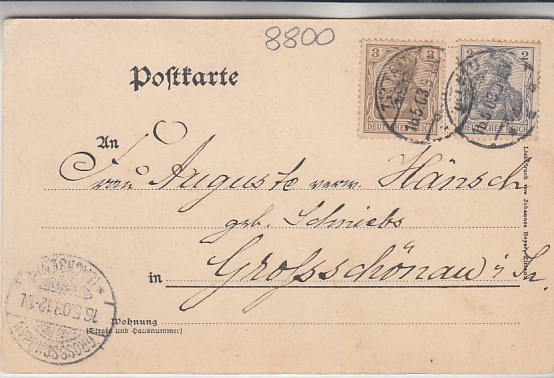 8800
Postkarte
3 3
DEUTSCHES REICH
2 2
DEUTSCHES REICH
ZITTAU
16.5.03
16.5.03
An
Frau Auguste verw. Hänsch
geb. Schniebs
in Grossschönau i. Sa.
Wohnung
(Straße und Hausnummer)
GROSSSCHÖNAU
16.5.03.12-1N.
Lichtdruck von Johannes